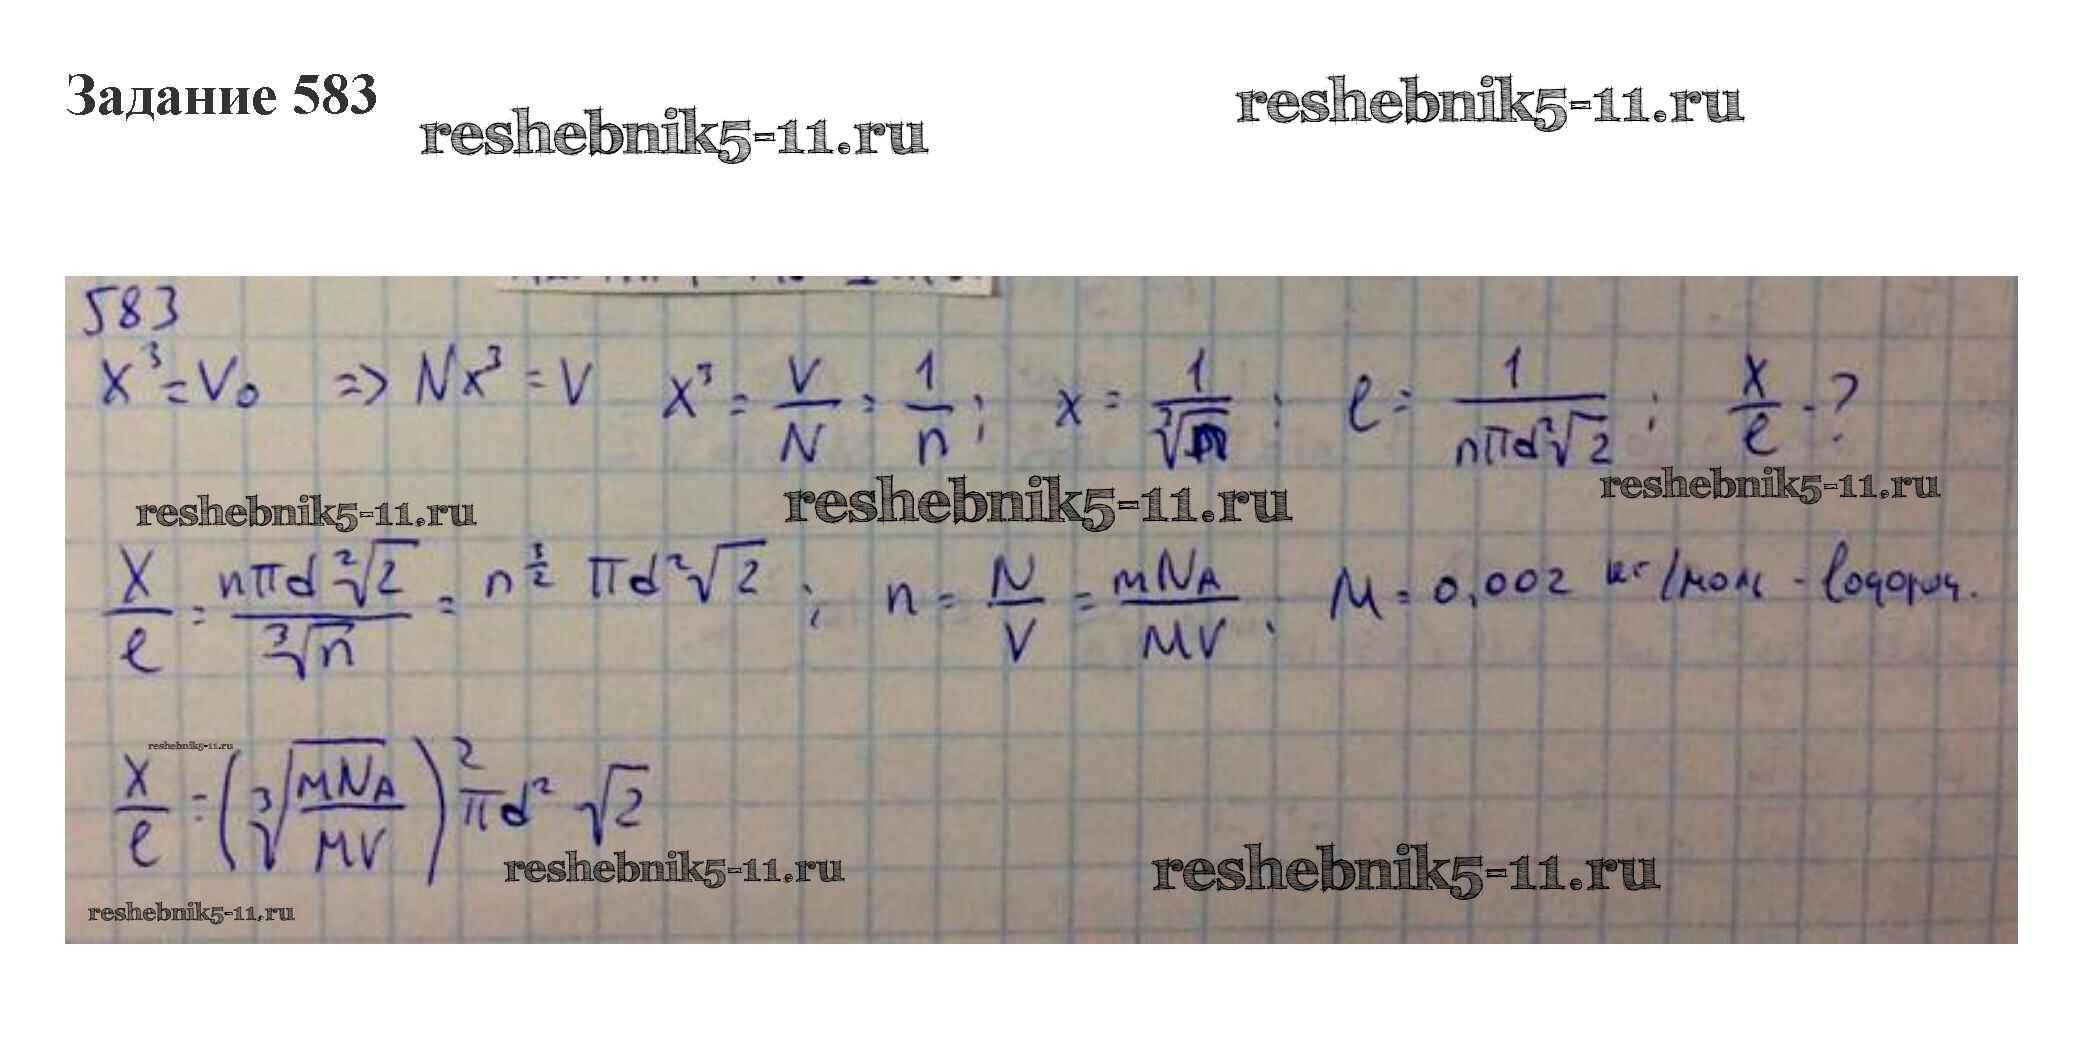 Задание 583
reshebnik5-11.ru reshebnik5-11.ru
583
x³ = V₀ => Nx³ = V x³ = V/N = 1/n ; x = 1/∛n ; ℓ = 1/(nπd²√2) ; x/ℓ - ?
reshebnik5-11.ru reshebnik5-11.ru reshebnik5-11.ru
x/ℓ = nπd²√2/∛n = n^(3/2) πd²√2 ; n = N/V = mNA/MV ; M = 0,002 кг/моль - водород.
reshebnik5-11.ru
x/ℓ = (∛(mNA/MV))² πd² √2
reshebnik5-11.ru reshebnik5-11.ru
reshebnik5-11.ru